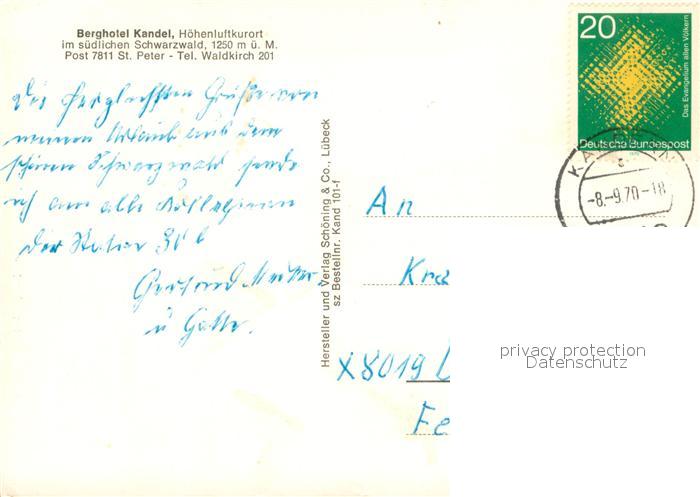 Berghotel Kandel, Höhenluftkurort
im südlichen Schwarzwald, 1250 m ü. M.
Post 7811 St. Peter - Tel. Waldkirch 201
Die herzlichsten Grüße von
meinem Urlaub aus dem
schönen Schwarzwald sende
ich an alle
der Station 36 b
Gerhard
u Gatte.
Hersteller und Verlag Schöning & Co., Lübeck
sz Bestellnr. Kand 101-f
20
Das Evangelium allen Völkern
Deutsche Bundespost
-8.-9.70-18
An
Kra
X8019
Fe
privacy protection
Datenschutz